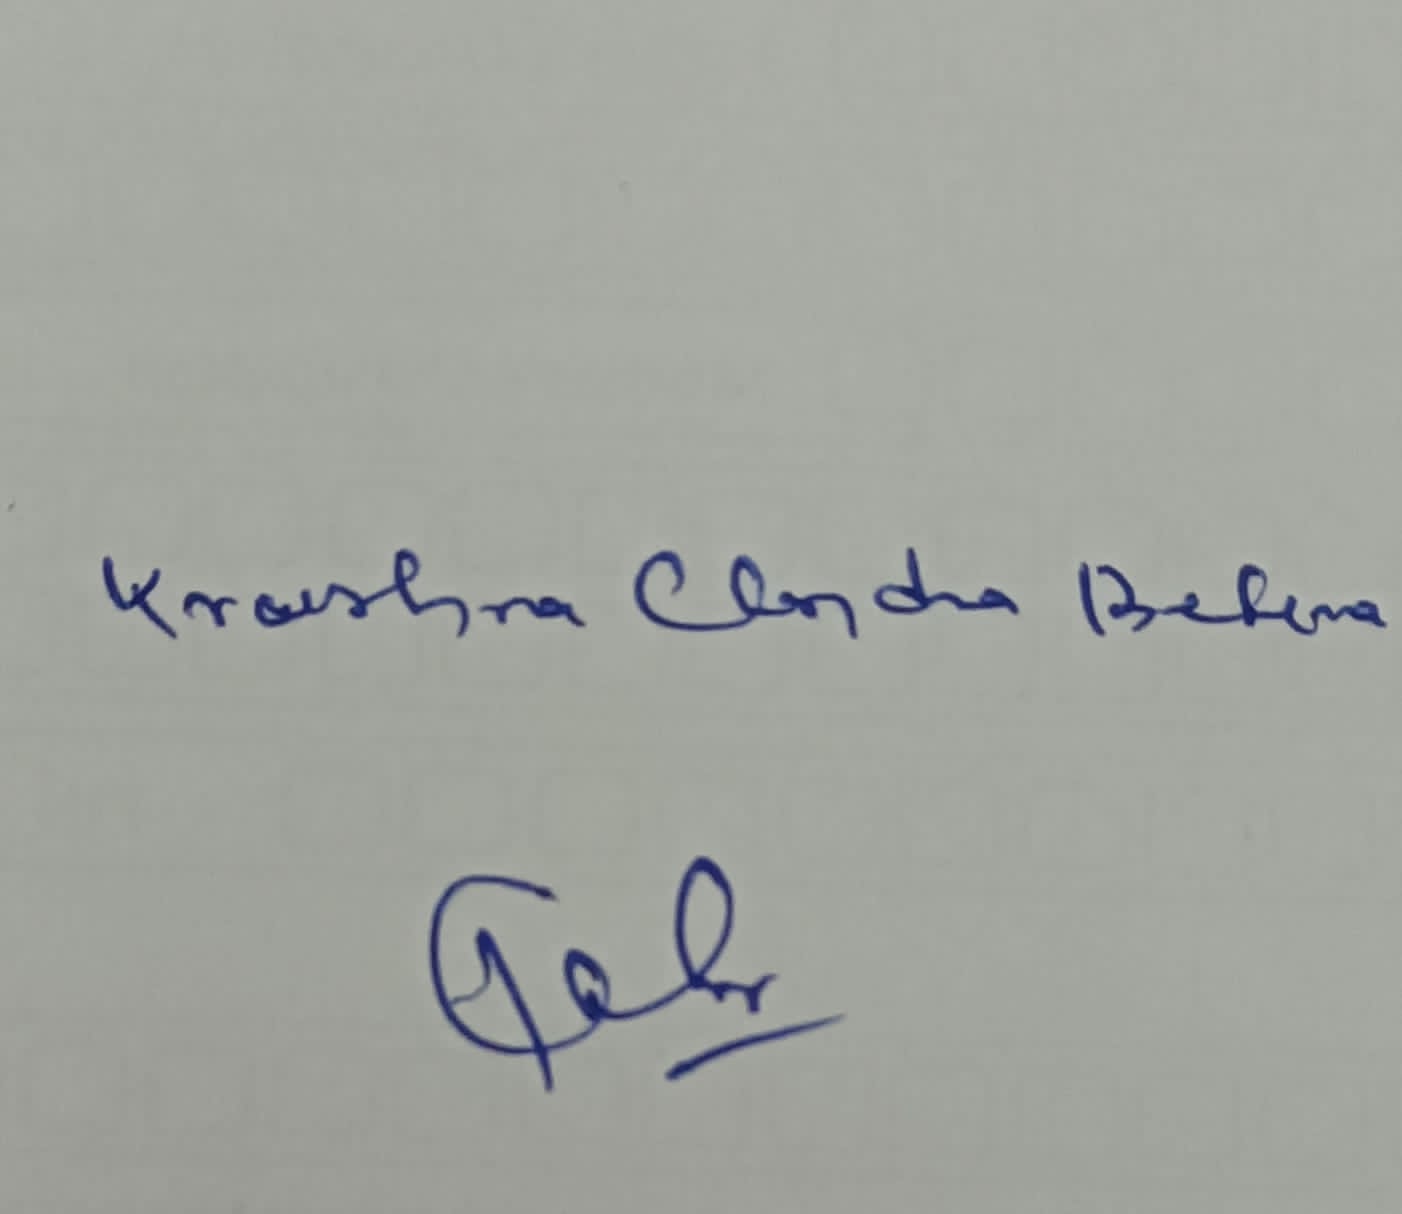 Kraushna Chandra Behera